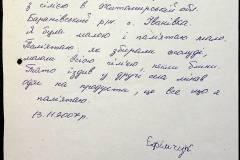 з сім'єю в Житомирській обл.
Баранівський р-н с. Іванівка.
Я була малою і пам'ятаю мало.
Пам'ятаю як збирали жолуді,
мололи всією сім'єю, пекли блини.
Тато їздив у другі села міняв
одяг на продукти, це все що я
пам'ятаю.
13.11.2007р